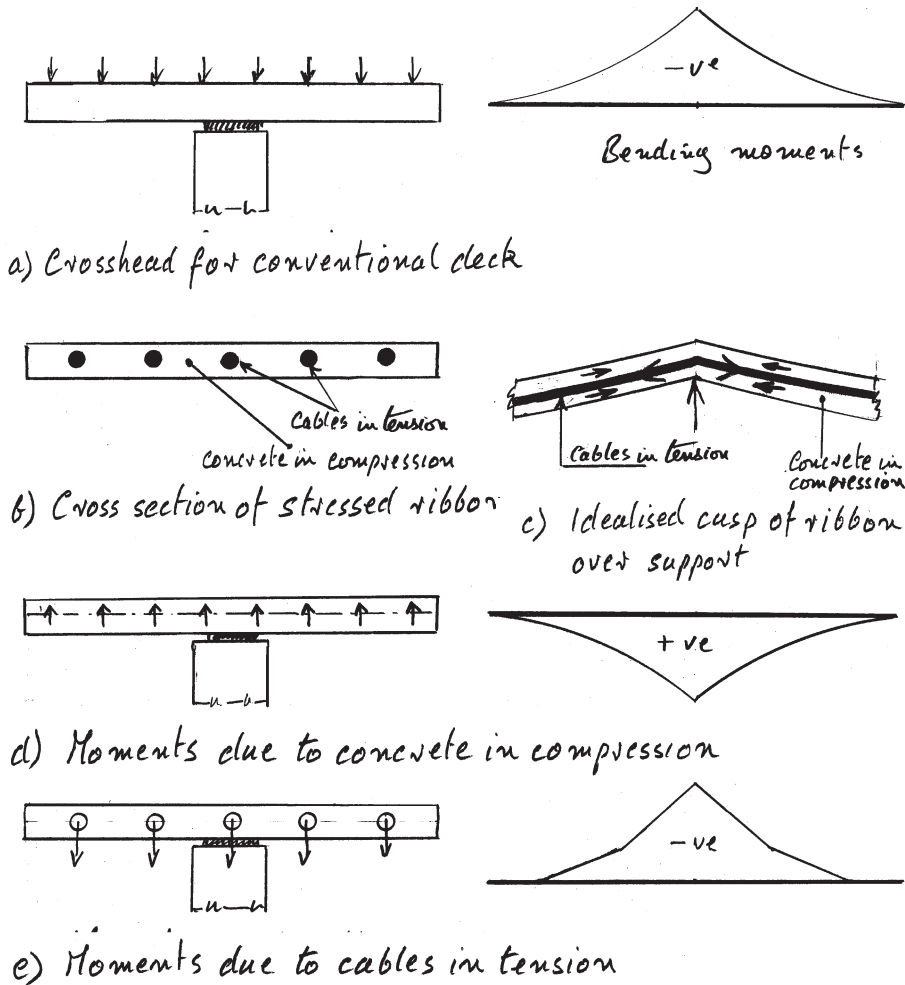 -ve
Bending moments
a) Crosshead for conventional deck
Cables in tension
Concrete in compression
b) Cross section of stressed ribbon
Cables in tension
Concrete in
compression
c) Idealised cusp of ribbon
over support
+ve
d) Moments due to concrete in compression
-ve
e) Moments due to cables in tension